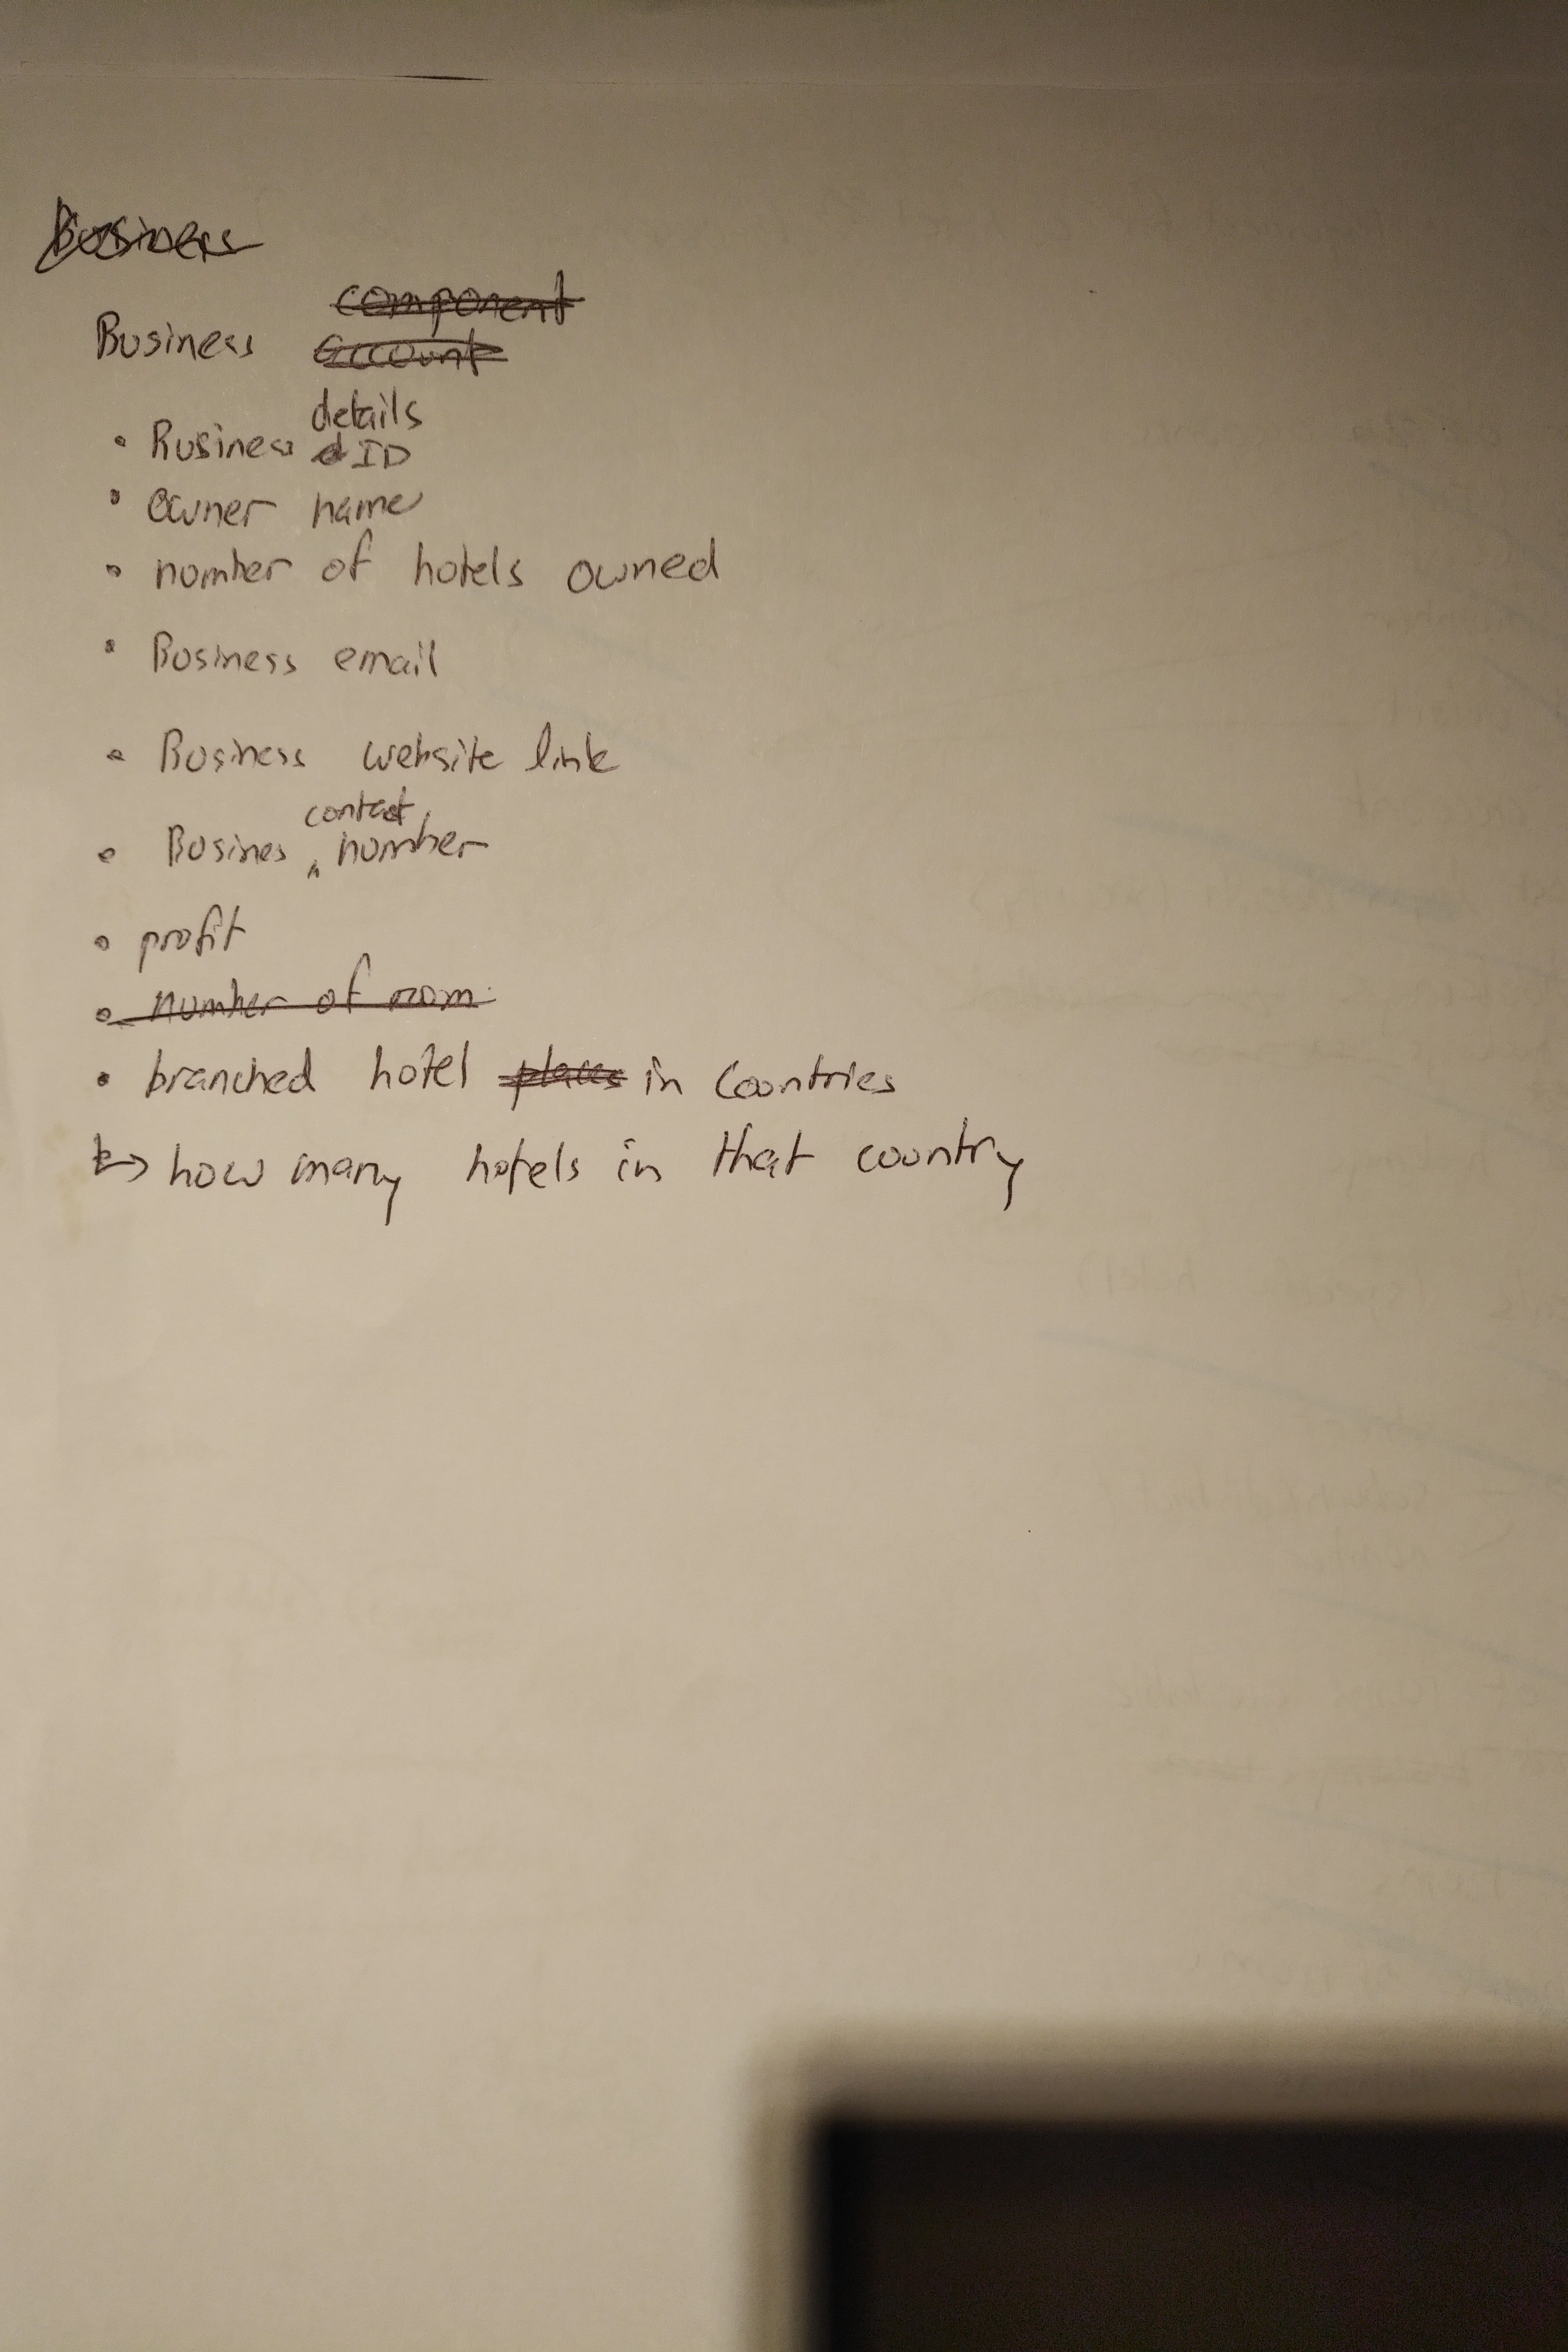 Business
component
Business account
details
• Business ID
• owner name
• number of hotels owned
• Business email
• Business website link
contact
• Busines ^ number
• profit
• number of room
• branched hotel places in Countries
↳ how many hotels in that country